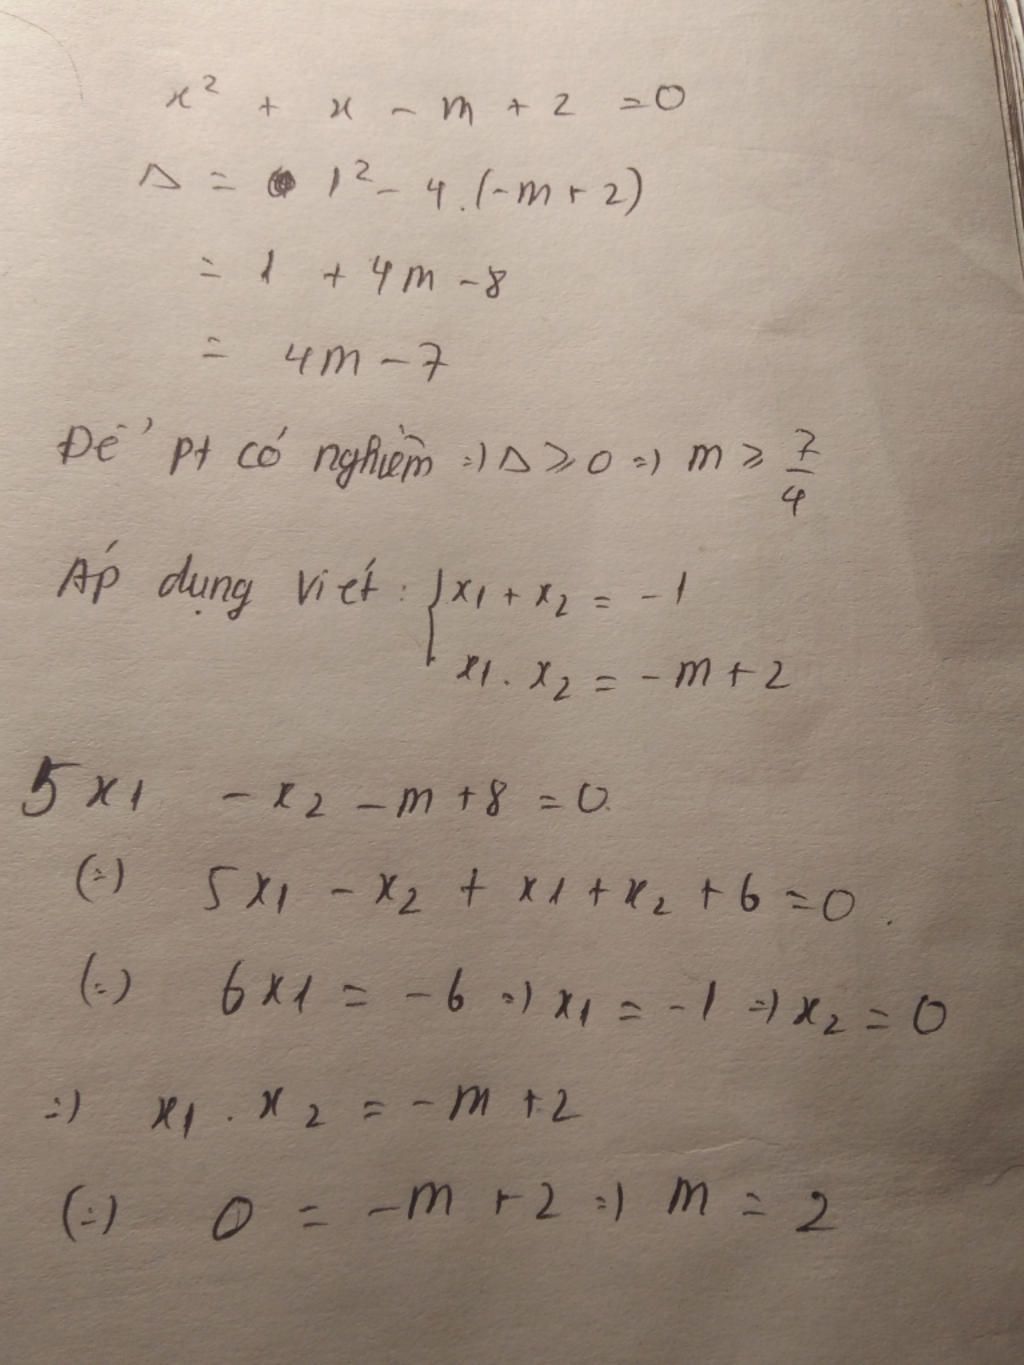 x² + x - m + 2 = 0
Δ = 1² - 4.(-m + 2)
= 1 + 4m - 8
= 4m - 7
Để pt có nghiệm => Δ ≥ 0 => m ≥ 7/4
Áp dụng Viét: { x1 + x2 = -1
x1. x2 = -m + 2
5x1 - x2 - m + 8 = 0
(=) 5x1 - x2 + x1 + x2 + 6 = 0.
(=) 6x1 = -6 => x1 = -1 => x2 = 0
=) x1 . x2 = -m + 2
(=) 0 = -m + 2 => m = 2